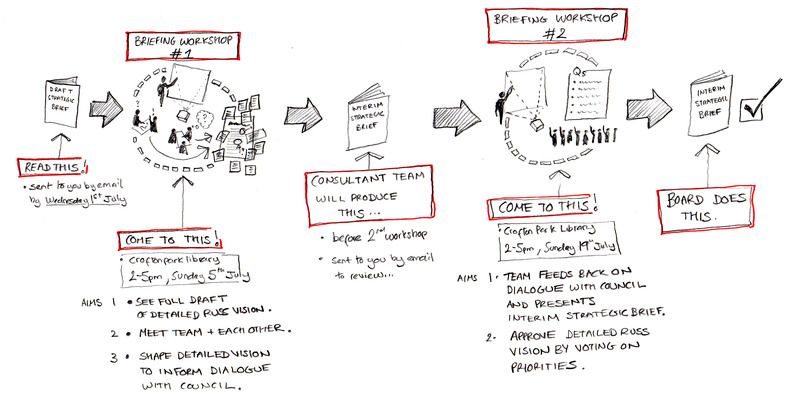 BRIEFING WORKSHOP
#1
DRAFT
STRATEGIC
BRIEF
READ THIS!
• sent to you by email
by Wednesday 1st July
COME TO THIS!
• Crofton park library
2-5pm, Sunday 5th July
AIMS 1 • SEE FULL DRAFT
OF DETAILED RUSS VISION.
2 • MEET TEAM + EACH OTHER.
3 • SHAPE DETAILED VISION
TO INFORM DIALOGUE
WITH COUNCIL.
INTERIM
STRATEGIC
BRIEF
CONSULTANT TEAM
WILL PRODUCE
THIS...
• before 2nd workshop
• sent to you by email
to review...
BRIEFING WORKSHOP
#2
Qs
COME TO THIS!
• Crofton Park Library
2-5pm, Sunday 19th July
AIMS 1• TEAM FEEDS BACK ON
DIALOGUE WITH COUNCIL
AND PRESENTS
INTERIM STRATEGIC BRIEF.
2• APPROVE DETAILED RUSS
VISION BY VOTING ON
PRIORITIES.
INTERIM
STRATEGIC
BRIEF
BOARD DOES
THIS.